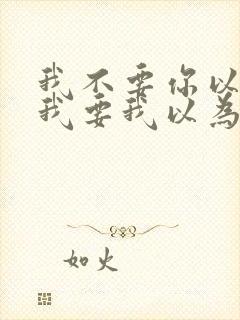 我不要你以
我要我以為
如火